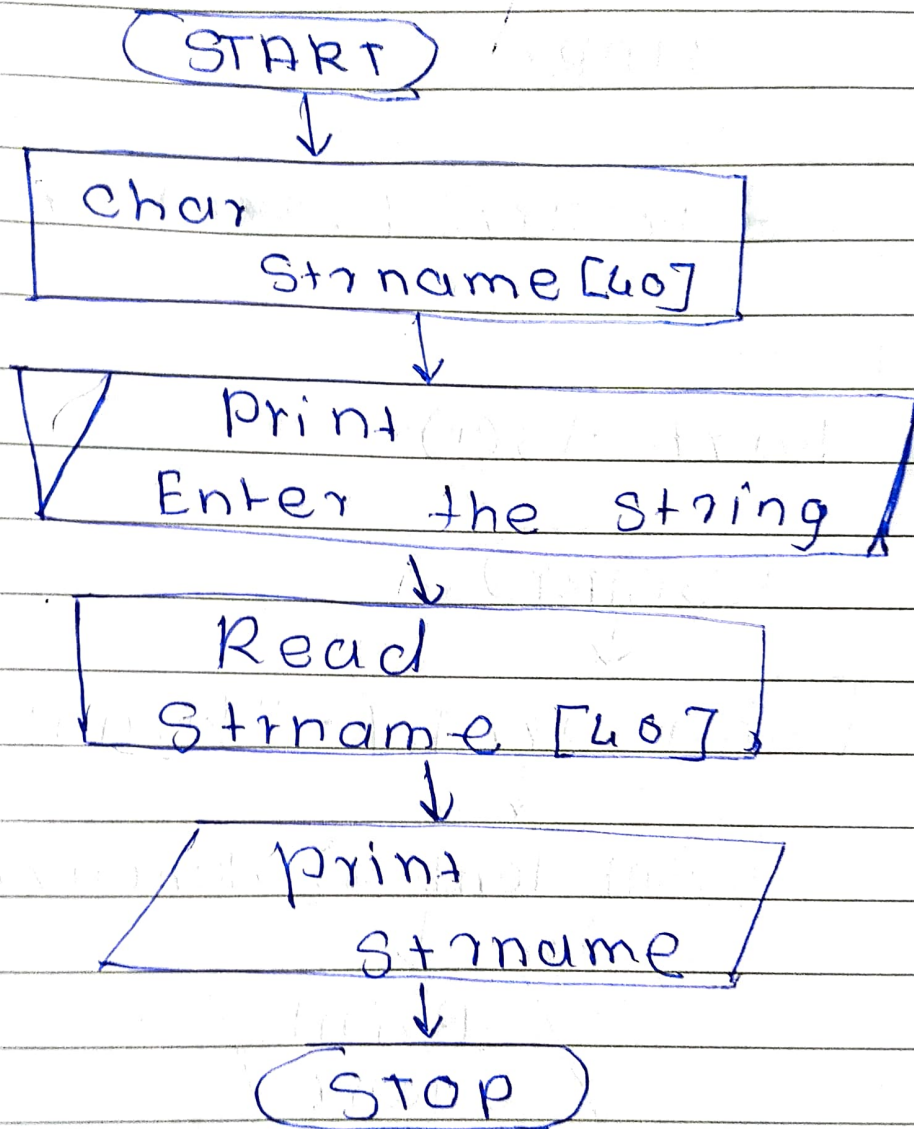 START
char
Strname [40]
print
Enter the string
Read
Strname [40]
print
Strname
STOP